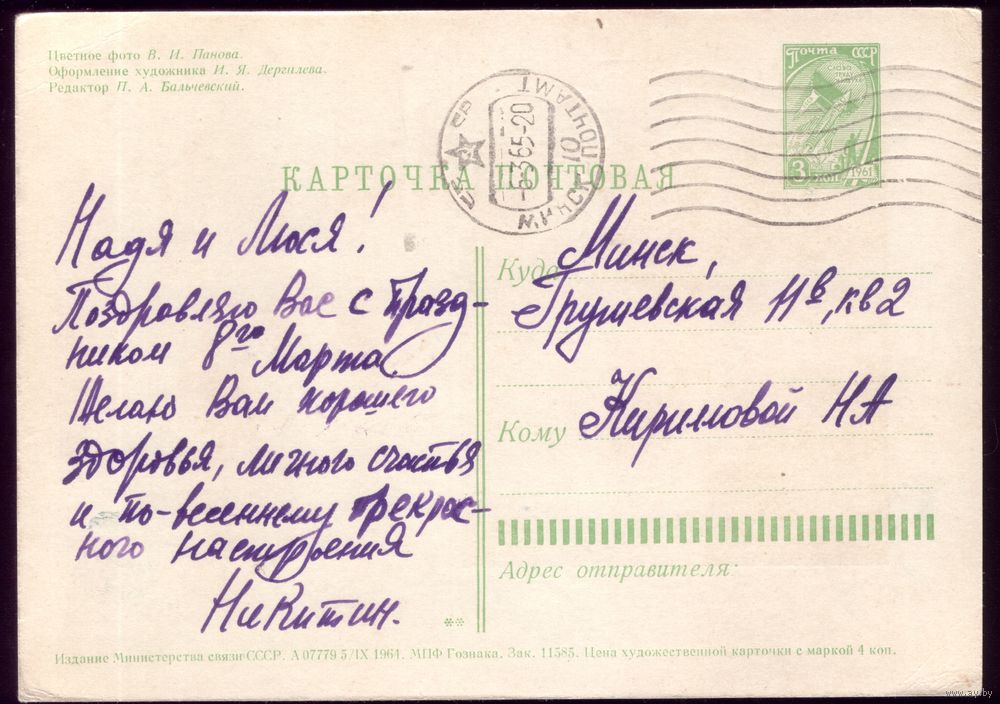 Цветное фото В. И. Панова.
Оформление художника И. Я. Дергилева.
Редактор П. А. Бальчевский.
Почта СССР
3 коп.
1961
МИНСК 10 ПОЧТАМТ
-6365-20
КАРТОЧКА ПОЧТОВАЯ
Надя и Люся!
Поздравляю Вас с празд-
ником 8го Марта.
Желаю Вам хорошего
здоровья, личного счастья
и по-весеннему прекрас-
ного настроения
Никитин.
Куда Минск,
Грушевская 11в, кв 2
Кому Кирилловой НА
Адрес отправителя:
**
Издание Министерства связи СССР. А 07779 5/IX 1964. МПФ Гознака. Зак. 11585. Цена художественной карточки с маркой 4 коп.
www.ay.by